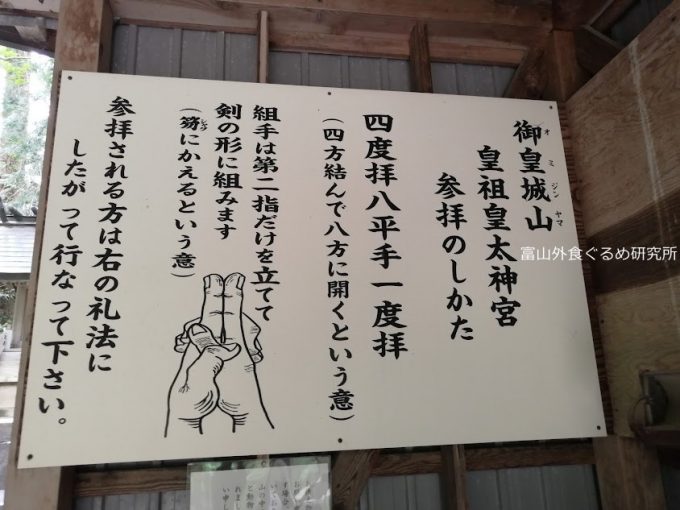 御皇城山
オミジンヤマ
皇祖皇太神宮
参拝のしかた
四度拝八平手一度拝
(四方結んで八方に開くという意)
組手は第二指だけを立てて
剣の形に組みます
(笏にかえるという意)
シャク
参拝される方は右の礼法に
したがって行なって下さい。
富山外食ぐるめ研究所